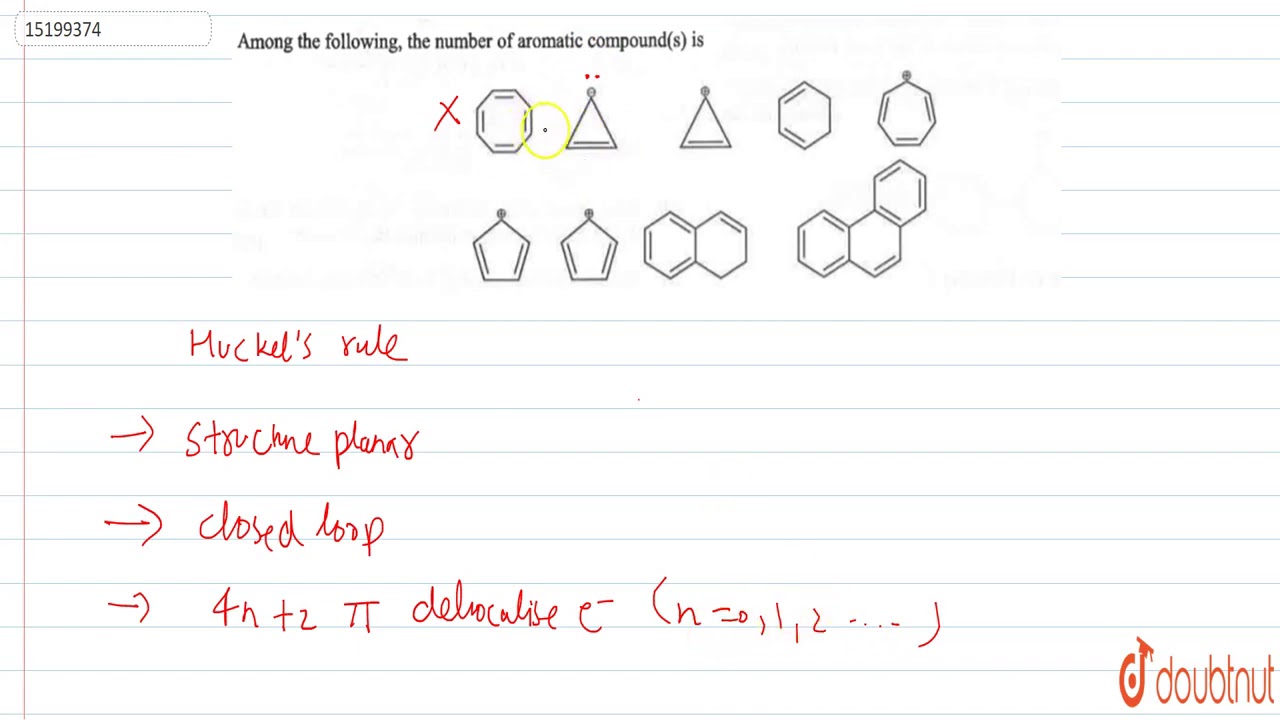 15199374
Among the following, the number of aromatic compound(s) is
X
Huckel's rule
→ Structure planar
→ closed loop
→ 4n+2 π delocalise e⁻ (n=0,1,2 ....)
doubtnut